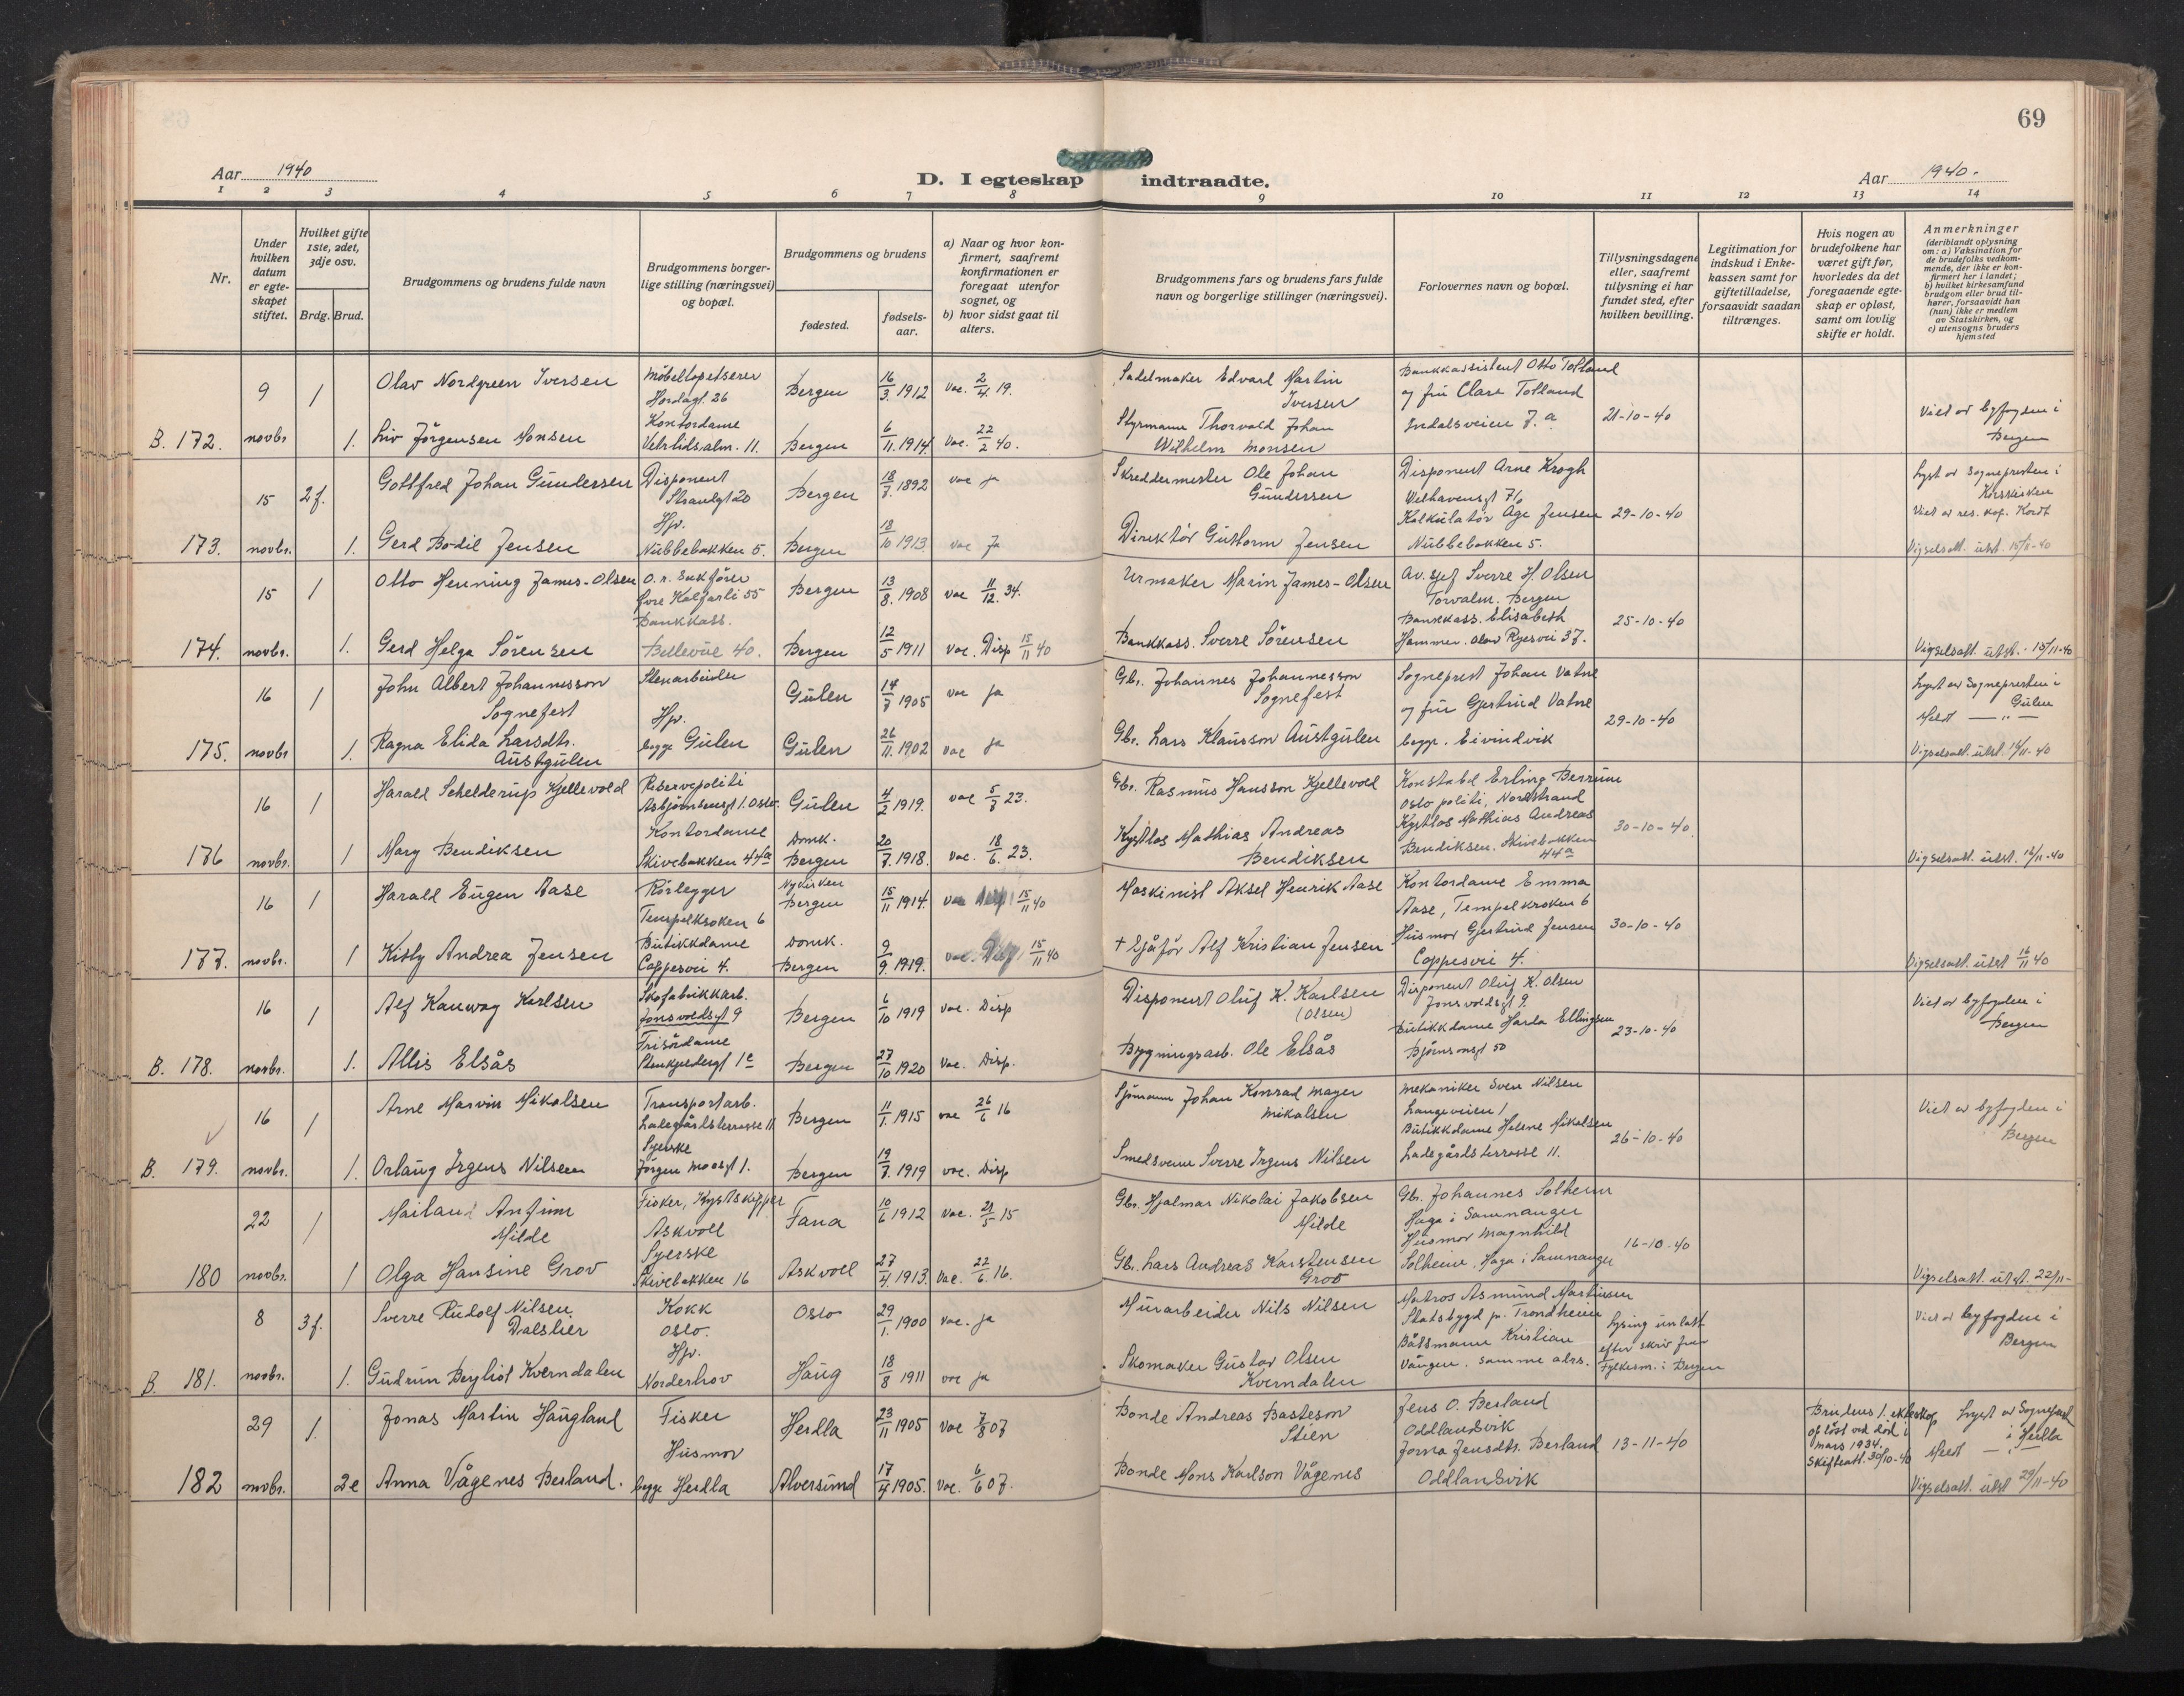 69
Aar 1940
D. I egteskap indtraadte.
Aar 1940.
1 2 3 4 5 6 7 8 9 10 11 12 13 14
Nr.
Under hvilken datum er egteskapet stiftet.
Hvilket gifte 1ste, 2det, 3dje osv.
Brdg. Brud.
Brudgommens og brudens fulde navn
Brudgommens borgerlige stilling (næringsvei) og bopæl.
Brudgommens og brudens
fødested.
fødselsaar.
a) Naar og hvor konfirmert, saafremt konfirmationen er foregaaet utenfor sognet, og
b) hvor sidst gaat til alters.
Brudgommens fars og brudens fars fulde navn og borgerlige stillinger (næringsvei).
Forlovernes navn og bopæl.
Tillysningsdagene eller, saafremt tillysning ei har fundet sted, efter hvilken bevilling.
Legitimation for indskud i Enkekassen samt for giftetilladelse, forsaavidt saadan tiltrænges.
Hvis nogen av brudefolkene har været gift før, hvorledes da det foregaaende egteskap er opløst, samt om lovlig skifte er holdt.
Anmerkninger
(deriblandt oplysning om: a) Vaksination for de brudefolks vedkommende, der ikke er konfirmert her i landet; b) hvilket kirkesamfund brudgom eller brud tilhører, forsaavidt han (hun) ikke er medlem av Statskirken, og c) utensogns bruders hjemsted
B. 172. 9 novbr 1 1.
Olav Nordgreen Iversen
Møbeltapetserer Hordagt. 26 Bergen 16/3. 1912 vac. 2/4. 19.
Liv Jörgensen Monsen
Kontordame Vetrlidsalm. 11. Bergen 6/11. 1914. vac. 22/2 40.
Sadelmaker Edvard Martin Iversen
Styrmann Thorvald Johan Wilhelm Monsen
Bankassistent Otto Tolland
og fru Clara Tolland
Indalsveien 7.a
21-10-40
Viet av byfogden i Bergen
173. 15 novbr. 2 f. 1.
Gottfred Johan Gundersen
Disponent Strandgt 20 Bergen 18/7. 1892 vac ja
Gerd Bodil Jensen
Hjv. Nubbebakken 5. Bergen 18/10 1913 vac Ja
Skreddermester Ole Johan Gundersen
Direktör Guttorm Jensen
Disponent Arne Krogh
Welhavensgt 71b
Kalkulatör Åge Jensen
Nubbebakken 5.
29-10-40
Lyst av Sognepresten i Korskirken
Viet av res. kap. Kordt
Vigselsatt. utst. 15/11-40
174. 15 novbr. 1 1.
Otto Henning James-Olsen
O.r. Sakförer Övre Kalfarli 55 Bergen 13/8. 1908 vac 11/12. 34.
Gerd Helga Sörensen
Bankkass. Bellevue 40. Bergen 12/5 1911 vac. Disp 15/11 40
Urmaker Marin James-Olsen
Bankkass. Sverre Sörensen
Av. sjef Sverre H. Olsen
Torvalm. Bergen
Bankkass. Elisabeth
Hammer. Olav Ryesvei 37.
25-10-40
Vigselsatt. utst. 15/11-40
175. 16 novbr 1 1.
John Albert Johannesson Sognefest
Gulen 14/7 1905 vac ja
Ragna Elida Larsdtr. Austgulen
Hjv. begge Gulen Gulen 26/11. 1902 vac ja
Gbr. Johannes Johannesson Sognefest
Gbr. Lars Klausson Austgulen
Sogneprest Johan Vatne
og fru Gjertrud Vatne
begge. Eivindvik
29-10-40
Lyst av Sognepresten i Gulen
Meldt — „ —
Vigselsatt. utst. 16/11-40
176 16 novbr. 1 1
Harald Schelderup Kjellevold
Reservepoliti Asbjørnsensgt 1. Oslo. Gulen 4/2 1919. vac 5/8 23.
Mary Bendiksen
Kontordame Skivebakken 44a Domk. Bergen 20/7. 1918. vac. 18/6. 23.
Gbr. Rasmus Hansson Kjellevold
Kystlos Mathias Andreas Bendiksen
Konstabel Erling Berrum
Oslo politi, Nordstrand
Kystlos Mathias Andreas
Bendiksen. Skivebakken 44a
30-10-40.
Vigselsatt. utst. 16/11-40
177. 16 novbr. 1 1
Harald Eugen Aase
Rörlegger Tempelkroken 6 Nykirken Bergen 15/11 1914. vac Disp 15/11 40
Kitty Andrea Jensen
Butikkdame Coppesvei 4. Domk. Bergen 9/9. 1919. vac. Disp 15/11 40
Maskinist Aksel Henrik Aase
† Sjåför Alf Kristian Jensen
Kontordame Emma
Aase, Tempelkroken 6
Husmor Gjertrud Jensen
Coppesvei 4.
30-10-40
Vigselsatt. utst 16/11 40
B. 178. 16 novbr. 1 1.
Alf Kanway Karlsen
Skofabrikkarb. Jonsvoldsgt 9 Bergen 6/10 1919 vac. Disp
Allis Elsås
Frisördame Stenkjeldergt 1c Bergen 27/10 1920 vac. Disp.
Disponent Oluf K. Karlsen (Olsen)
Bygningsarb. Ole Elsås
Disponent Oluf K. Olsen
Jonsvoldsgt 9.
Butikkdame Harda Ellingsen
Bjørnsonsgt 50
23-10-40
Viet av byfogden i Bergen
B. 179. 16 novbr. 1 1.
Arne Marvin Mikalsen
Transportarb. Ladegårdsterrasse 11 Bergen 11/1. 1915 vac 26/6 16
Orlaug Irgens Nilsen
Syerske Jörgen Moesgt 1. Bergen 19/7. 1919 vac. Disp
Sjömann Johan Konrad Mayer Mikalsen
Smedsvenn Sverre Irgens Nilsen
Mekaniker Sven Nilsen
Langeveien 1
Butikkdame Helene Mikalsen
Ladegårdsterrasse 11.
26-10-40
Viet av byfogden i Bergen
180 22 novbr. 1 1
Mailand Antinn Milde
Fisker, Kystskipper Askvoll Fana 10/6 1912 vac. 21/5 15
Olga Hansine Grov
Syerske Skivebakken 16 Askvoll 27/4. 1913. vac. 22/6. 16.
Gbr. Hjalmar Nikolai Jakobsen Milde
Gb. Lars Andreas Karstensen Grov
Gbr. Johannes Solheim
Haga i Samnanger
Husmor Magnhild
Solheim, Haga i Samnanger
16-10-40
Vigselsatt. utst. 22/11-
B. 181. 8 novbr. 3 f. 1.
Sverre Rudolf Nilsen Dalslier
Kokk Oslo. Oslo 29/1. 1900 vac. ja
Gudrun Bergliot Kverndalen
Hjv. Norderhov Haug 18/8 1911 vac ja
Murarbeider Nils Nilsen
Skomaker Gustav Olsen Kverndalen
Matros Asmund Martinsen
Statsbygd pr. Trondheim
Båtsmann Kristian
Vangen. samme adrs.
Lysing unlatt efter skriv fra Fylkesm. i Bergen
Viet av byfogden i Bergen
182 29 novbr. 1. 2e
Jonas Martin Haugland
Fisker Herdla 23/11 1905 vac 7/8 07
Anna Vågenes Berland.
Husmor begge Herdla Alversund 17/4 1905. vac. 6/6 07.
Bonde Andreas Basteson Stien
Bonde Mons Karlson Vågenes
Jens O. Berland
Oddlandsvik
Jorna Jensdtr. Berland
Oddlandsvik
13-11-40
Brudens 1. ekteskap opløst ved död i mars 1934. Skifteatt. 30/10-40
Lyst av Sognepr. i Herdla
Meldt — „ —
Vigselsatt. utst 29/11-40